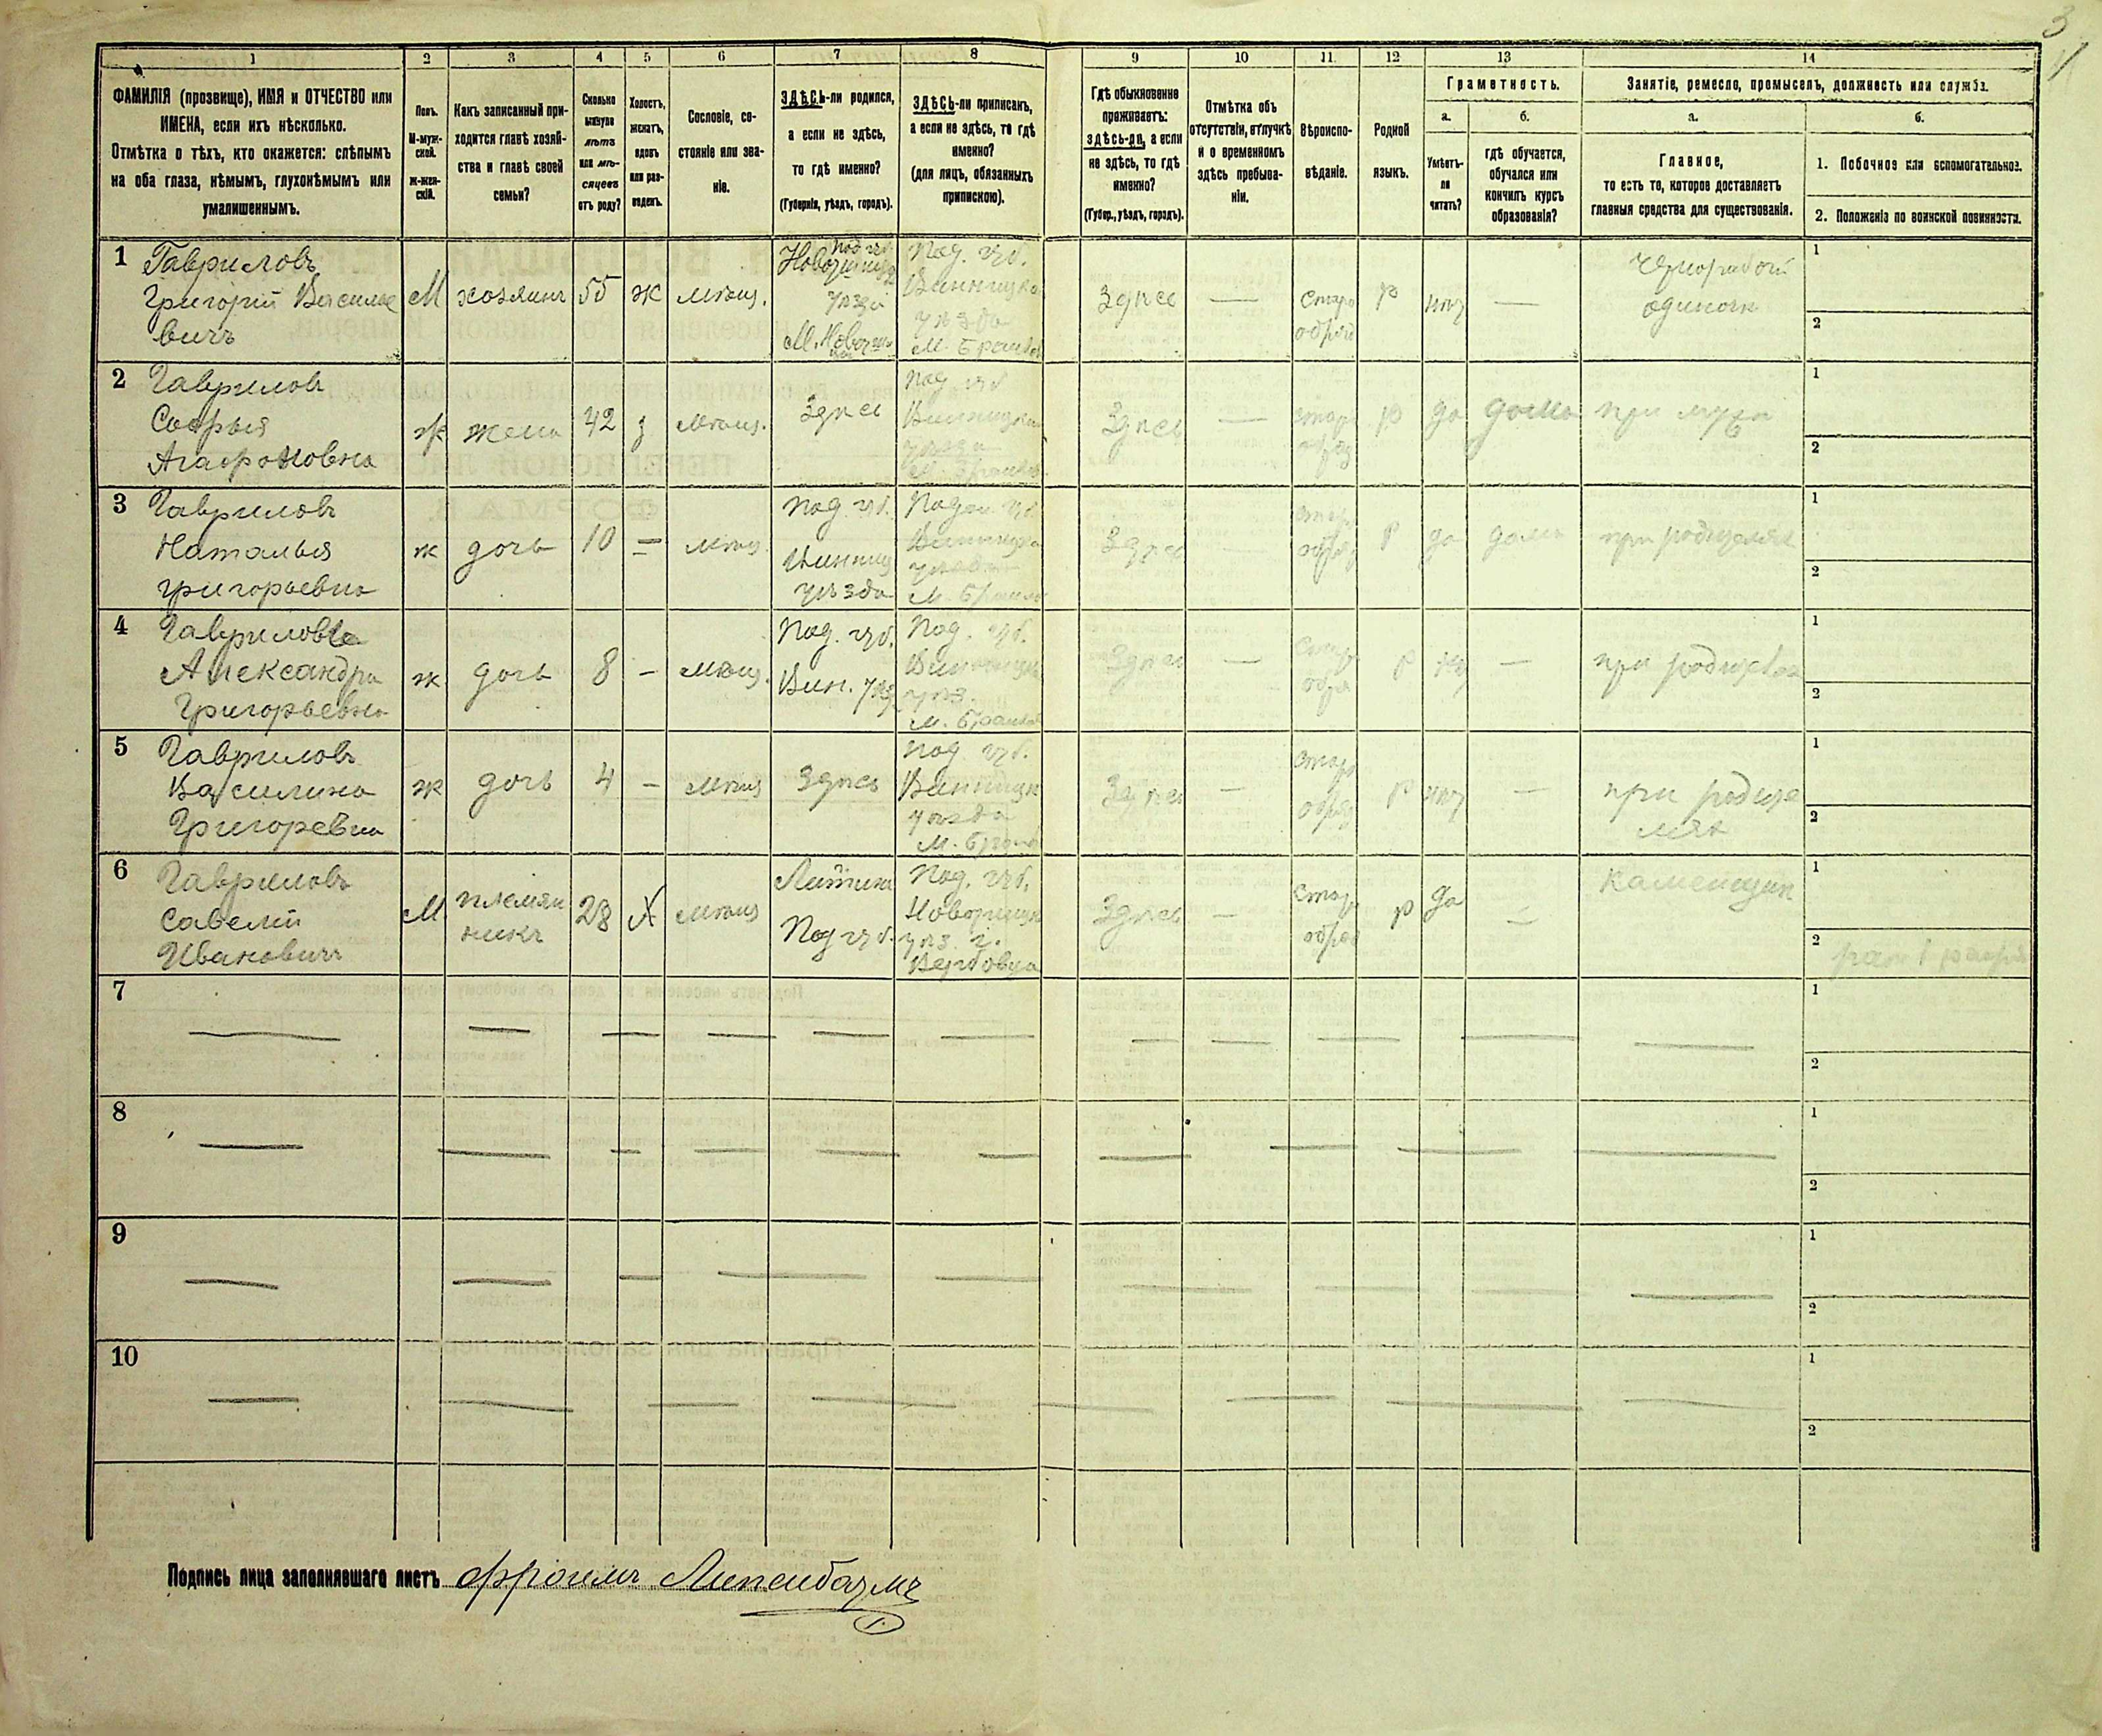 3
1 2 3 4 5 6 7 8 9 10 11 12 13 14
ФАМИЛІЯ (прозвище), ИМЯ и ОТЧЕСТВО или
ИМЕНА, если ихъ нѣсколько.
Отмѣтка о тѣхъ, кто окажется: слѣпымъ
на оба глаза, нѣмымъ, глухонѣмымъ или
умалишеннымъ.
Полъ.
М-муж-
ской.
ж-жен-
скій.
Какъ записанный при-
ходится главѣ хозяй-
ства и главѣ своей
семьи?
Сколько
минуло
лѣтъ
или мѣ-
сяцевъ
отъ роду?
Холостъ,
женатъ,
вдовъ
или раз-
веденъ.
Сословіе, со-
стояніе или зва-
ніе.
ЗДѢСЬ-ли родился,
а если не здѣсь,
то гдѣ именно?
(Губернія, уѣздъ, городъ).
ЗДѢСЬ-ли приписанъ,
а если не здѣсь, то гдѣ
именно?
(для лицъ, обязанныхъ
припискою).
Гдѣ обыкновенно
проживаетъ:
здѣсь-ли, а если
не здѣсь, то гдѣ
именно?
(Губер., уѣздъ, городъ).
Отмѣтка объ
отсутствіи, отлучкѣ
и о временномъ
здѣсь пребыва-
ніи.
Вѣроиспо-
вѣданіе.
Родной
языкъ.
Грамотность.
а.
Умѣетъ-
ли
читать?
б.
гдѣ обучается,
обучался или
кончилъ курсъ
образованія?
Занятіе, ремесло, промыселъ, должность или служба.
а.
Главное,
то есть то, которое доставляетъ
главныя средства для существованія.
б.
1. Побочное или вспомогательное.
2. Положеніе по воинской повинности.
1
Гавриловъ
Григорій Василье
вичъ
М
хозяинъ
55
ж
мѣщ.
под. губ.
уѣзда
Под. губ.
Винницка
уѣзда
М. Браилов
Здѣсь
—
Старо
обряд
р
нѣт
—
чернорабочій
1
2
2
Гавриловъ
Софья
Агафоновна
ж
жена
42
з
мѣщ.
Здѣсь
Под губ
Винницка
уѣзда
М. Браилов
Здѣсь
—
Старо
обряд
р
да
дома
при мужѣ
1
2
3
Гавриловъ
Наталья
григорьевна
ж
дочь
10
—
мѣщ.
Под. губ.
Винниц
уѣзда
Подол. губ.
Винницка
уѣзда
М. Браилов
Здѣсь
—
Старо
обряд
р
да
дома
при родителях
1
2
4
Гаврилова
Александра
Григорьевна
ж
дочь
8
—
мѣщ.
Под. губ.
Вин. уѣзд
Под. губ.
Винницка
уѣз.
М. Браилов
Здѣсь
—
Старо
обря
р
нѣт
—
при родителях
1
2
5
Гавриловъ
Василина
Григоревна
ж
дочь
4
—
мѣщ
Здѣсь
Под губ.
Винницк
уѣзда
М. Браилов
Здѣсь
—
Старо
обряд
р
нѣт
—
при родите
лях
1
2
6
Гавриловъ
Савелій
Ивановичъ
М
племян
никъ
28
Х
мѣщ
Литина
Под губ.
Под. губ.
Новоушицк
уѣз. г.
Вербовца
Здѣсь
—
Старо
обряд
р
да
—
Каменщик
1
2
7
1
2
8
1
2
9
1
2
10
1
2
Подпись лица заполнявшаго листъ Фроимъ